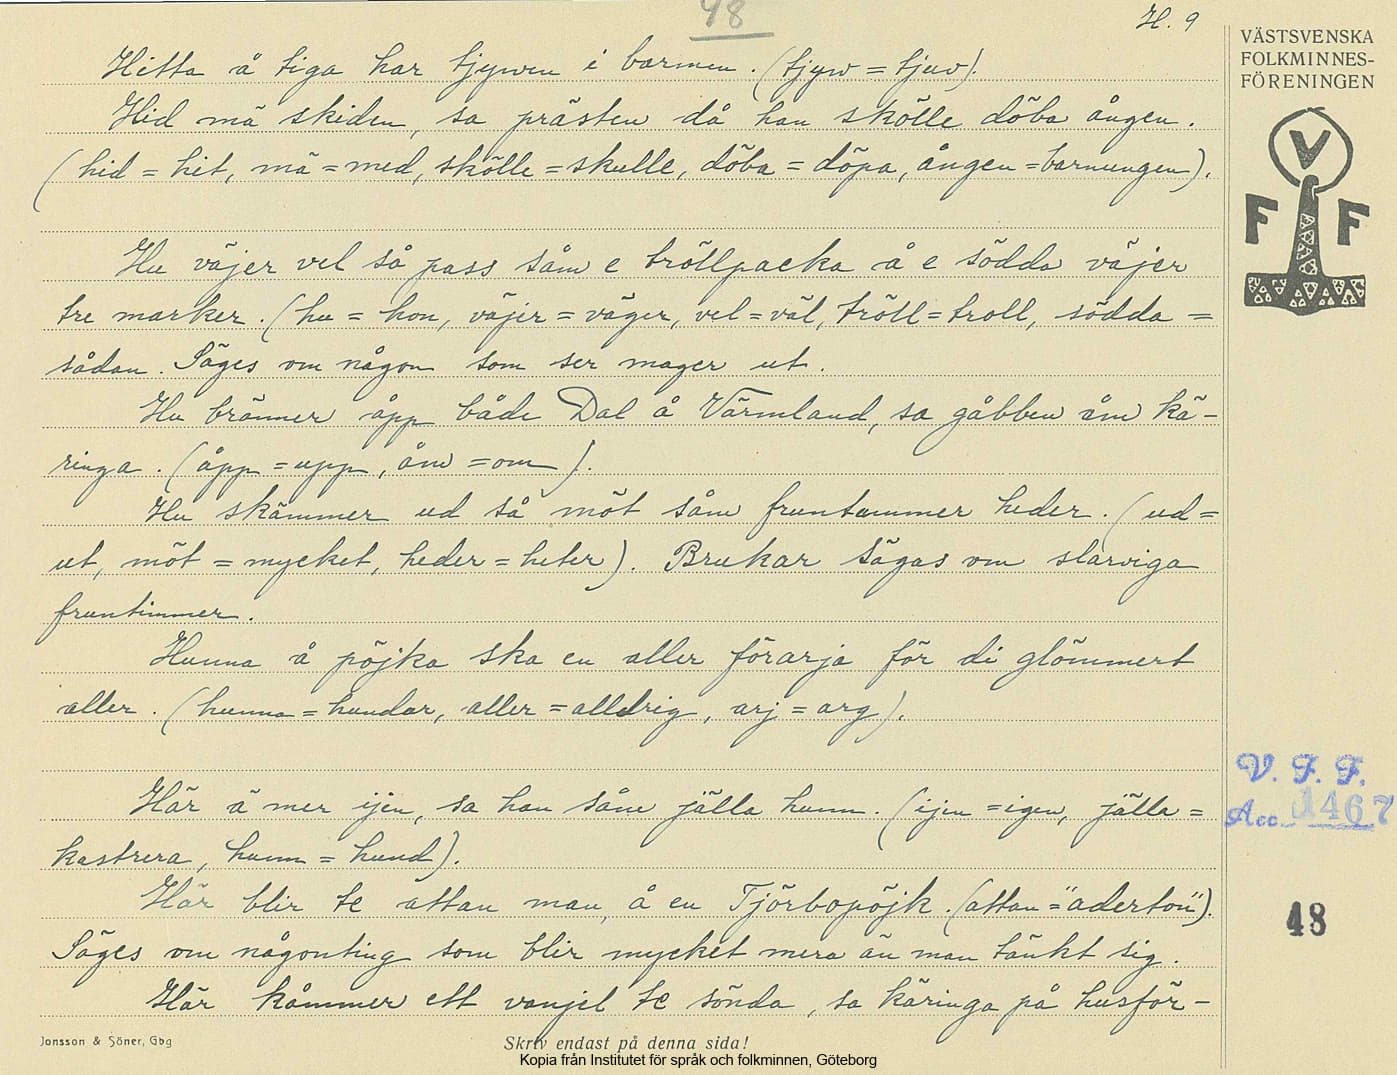 48
H. 9
Hitta å tiga har tjyven i barmen. (tjyv = tjuv).
Hid mä skiden, sa prästen då han skölle döba ången.
(hid = hit, mä = med, skölle = skulle, döba = döpa, ången = barnungen).
Hu väjer vel så pass såm e tröllpacka å e södda väjer
tre marker. (hu = hon, väjer = väger, vel = väl, tröll = troll, södda =
sådan. Säges om någon som ser mager ut.
Hu bränner åpp både Dal å Värmland, sa gåbben åm kä-
ringa. (åpp = upp, åm = om).
Hu skämmer ud så möt såm fruntammer heder. (ud =
ut, möt = mycket, heder = heter). Brukar sägas om slarviga
fruntimmer.
Hunna å pöjka ska en aller förarja för di glömmert
aller. (hunna = hundar, aller = alldrig, arj = arg).
Här ä mer ijen, sa han såm jälla hunn. (ijen = igen, jälla =
kastrera, hunn = hund).
Här blir te attan man, å en Tjörbopöjk. (attan = "aderton").
Säges om någonting som blir mycket mera än man tänkt sig.
Här kåmmer ett vanjel te sönda, sa käringa på husför-
VÄSTSVENSKA
FOLKMINNES-
FÖRENINGEN
V
F F
V. F. F.
Acc. 1467
48
Jonsson & Söner, Gbg
Skriv endast på denna sida!
Kopia från Institutet för språk och folkminnen, Göteborg